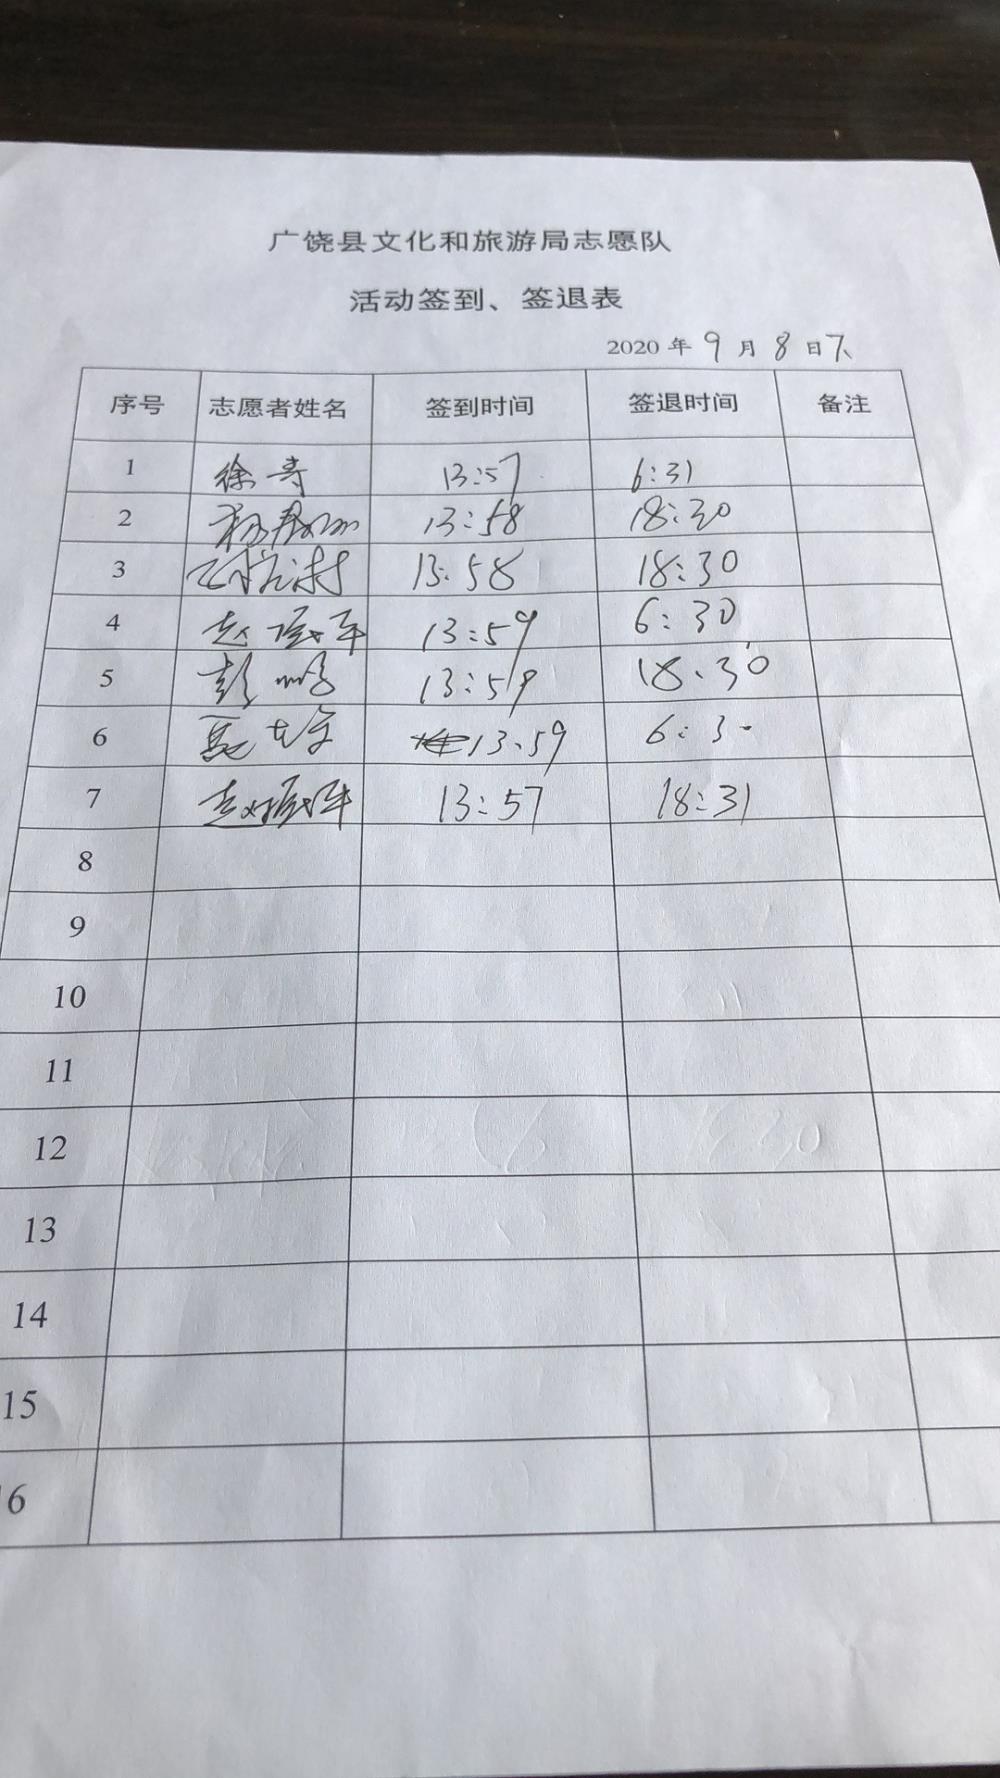 广饶县文化和旅游局志愿队
活动签到、签退表
2020 年 9 月 8 日下
序号 志愿者姓名 签到时间 签退时间 备注
1 徐寿 13:57 6:31
2 13:58 18:30
3 13:58 18:30
4 赵 军 13:59 6:30
5 彭鹏 13:59 18:30
6 13:59 6:3
7 赵 军 13:57 18:31
8
9
10
11
12
13
14
15
16